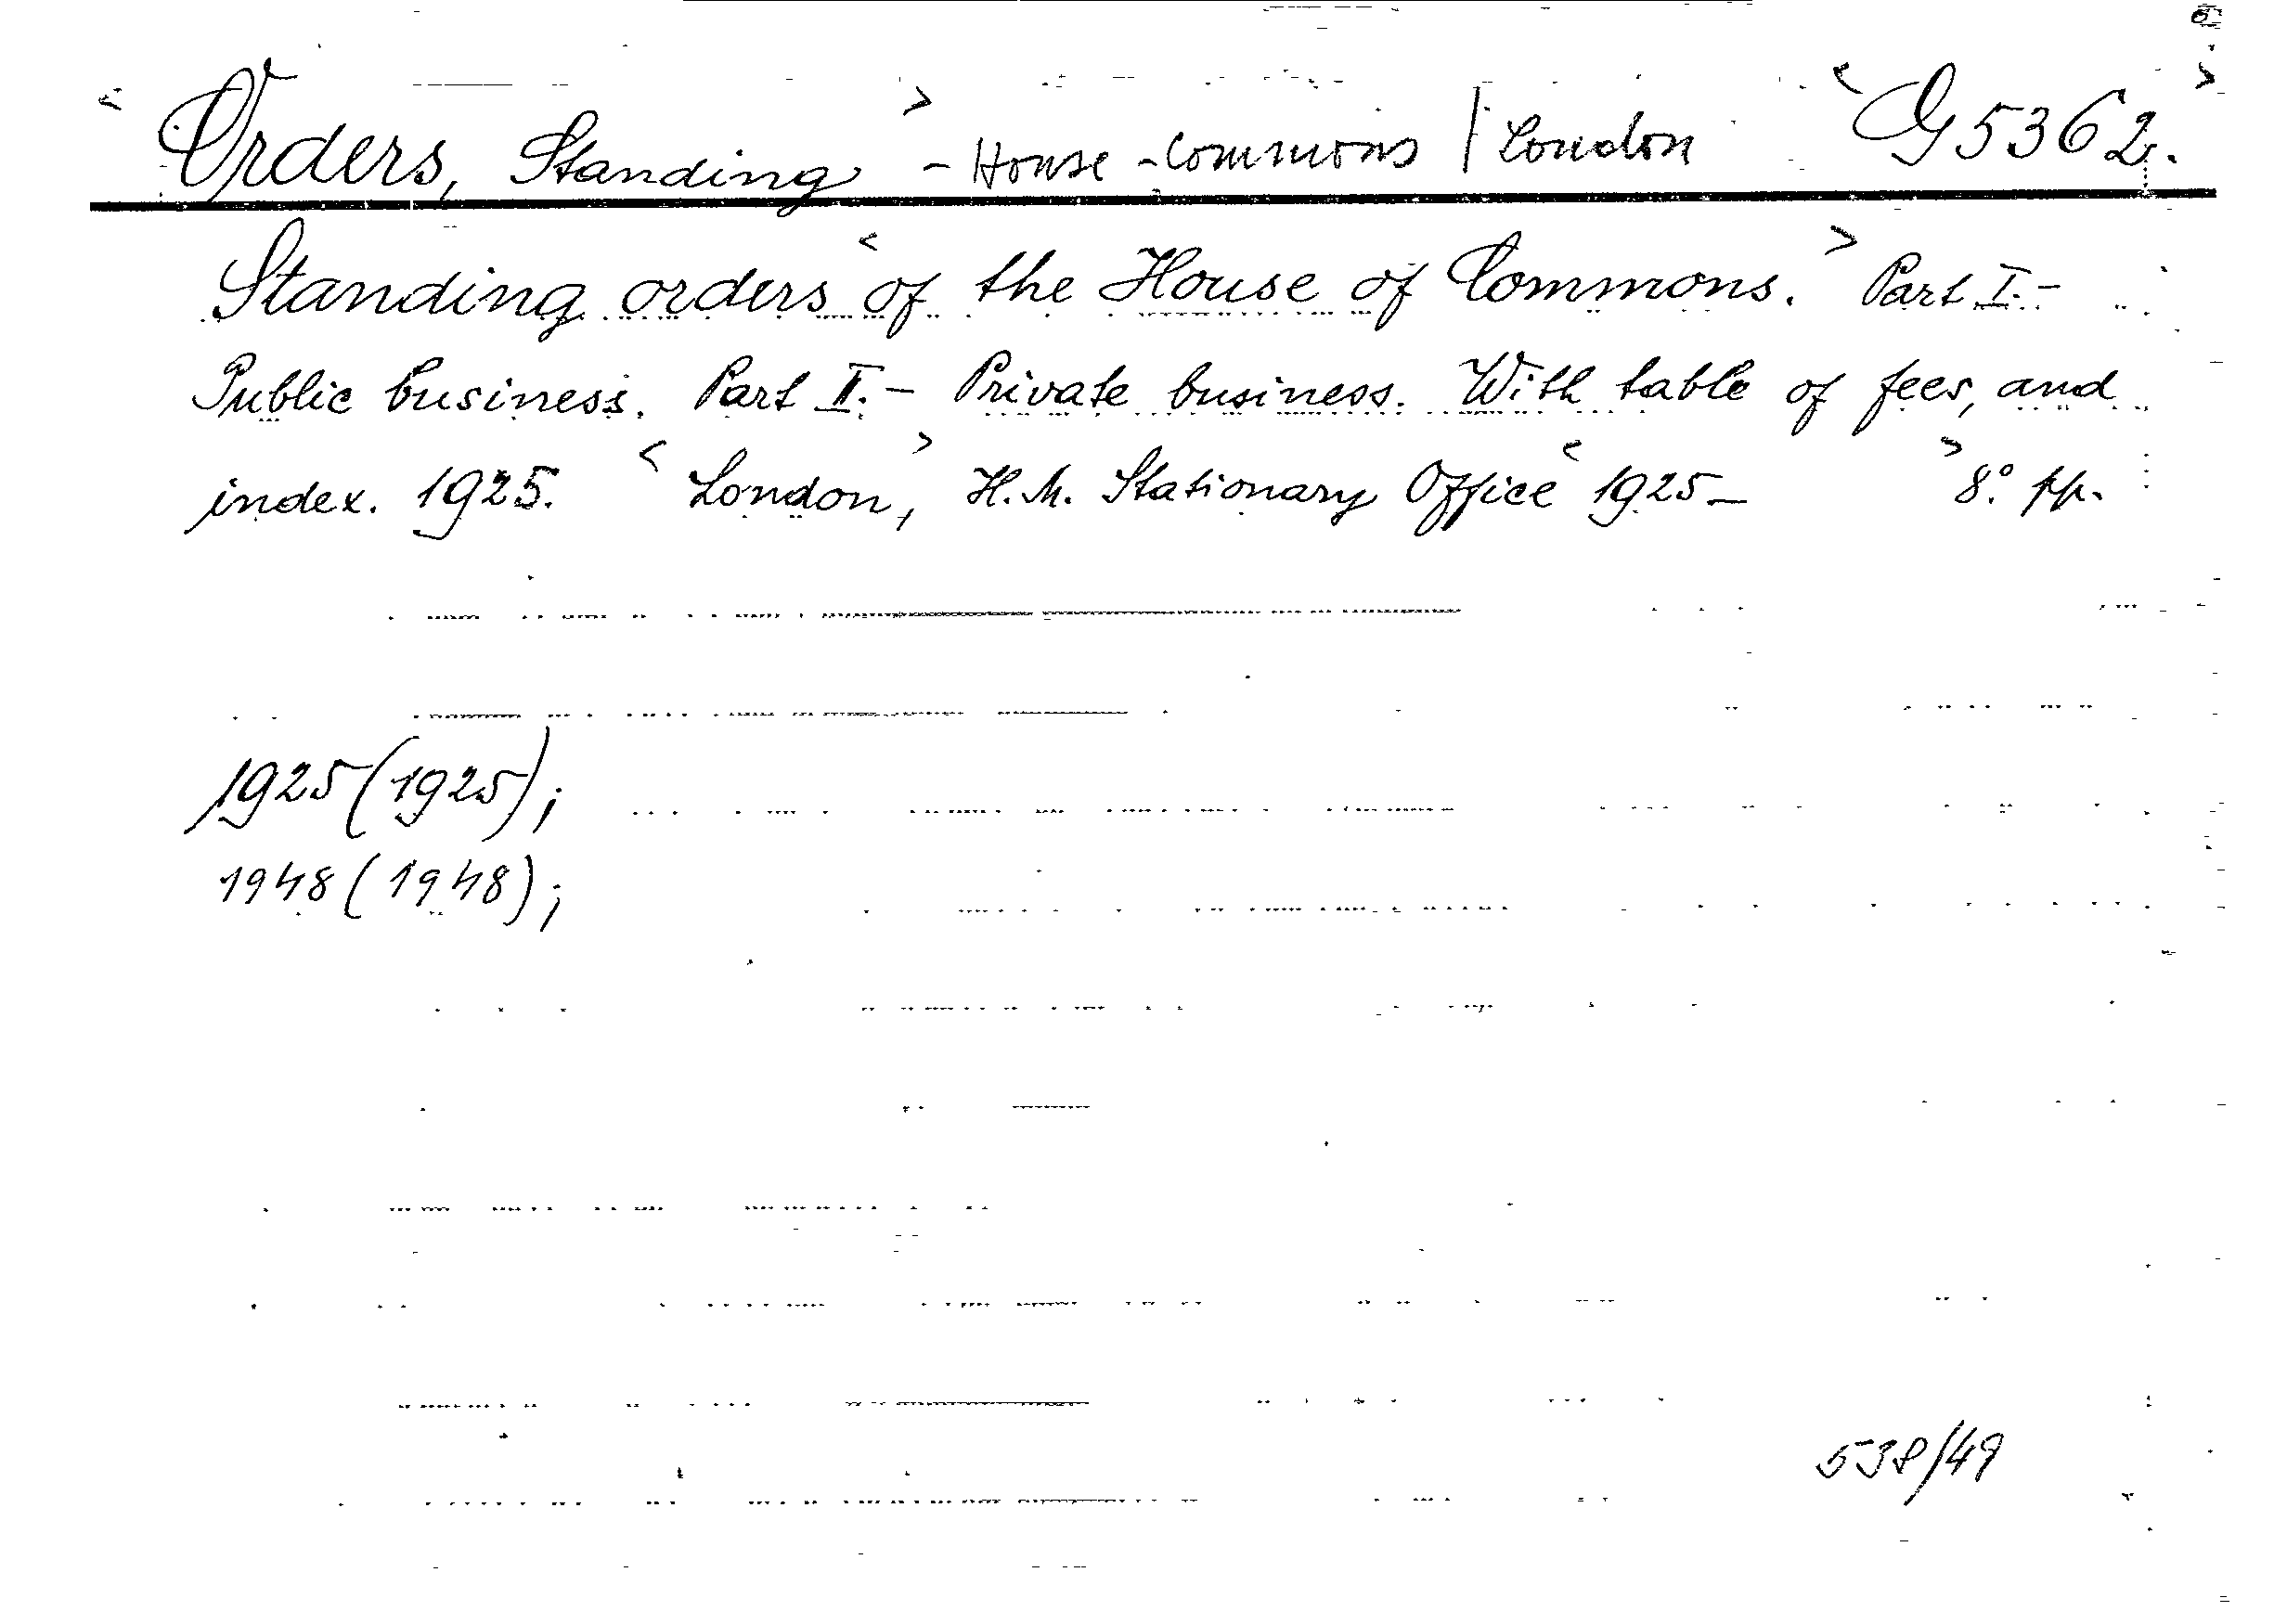 < Orders, Standing > - House - Commons / London < G 5362. >
Standing orders < of the House of Commons. > Part I. -
Public business. Part II. - Private business. With table of fees, and
index. 1925. < London, > H. M. Stationary Office < 1925 - > 8.° pp.
1925 (1925);
1948 (1948);
538/49